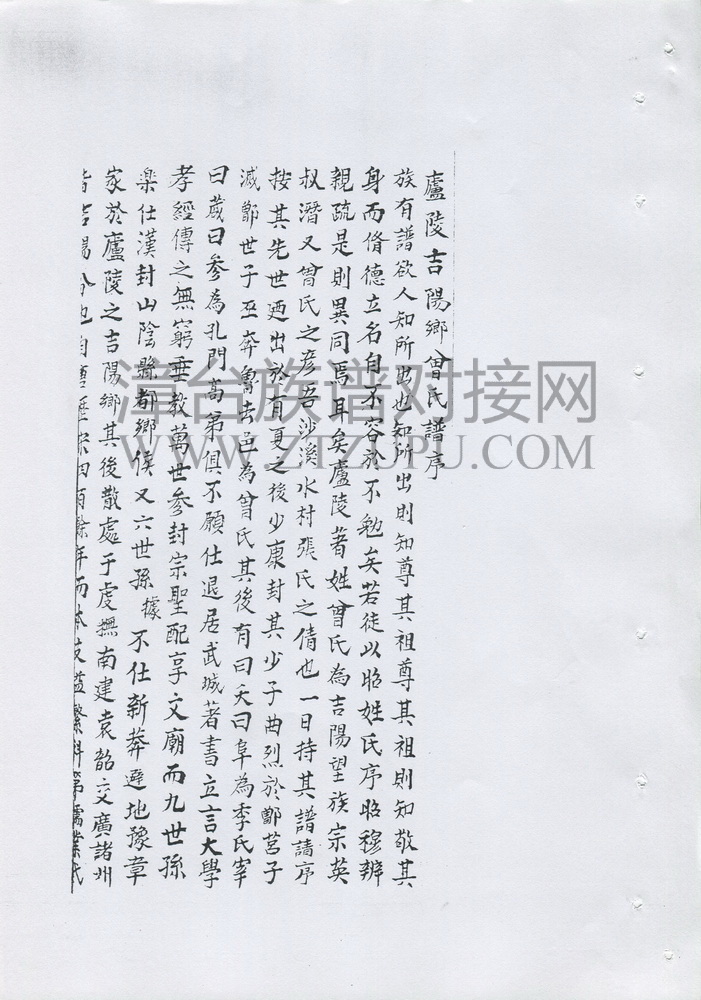 廬陵吉陽鄉曾氏譜序
族有譜欲人知所出也知所出則知尊其祖尊其祖則知敬其
身而脩德立名自不容於不勉矣若徒以昭姓氏序昭穆辨
親疏是則異同焉耳矣廬陵著姓曾氏為吉陽望族宗英
叔潛又曾氏之彥吾沙溪水村張氏之倩也一日持其譜請序
按其先世廼出於有夏之後少康封其少子曲烈於鄫莒子
滅鄫世子巫奔魯去邑為曾氏其後有曰夭曰阜為季氏宰
曰蒧曰參為孔門高弟俱不願仕退居武城著書立言大學
孝經傳之無窮垂教萬世參封宗聖配享文廟而九世孫
樂仕漢封山陰縣都鄉侯又六世孫據不仕新莽避地豫章
家於廬陵之吉陽鄉其後散處于虔撫南建袁韶交廣諸州
皆吉陽分也自唐歷宋四百餘年而本支蕃繁科第儒業代
漳台族谱对接网
WWW.ZTZUPU.COM